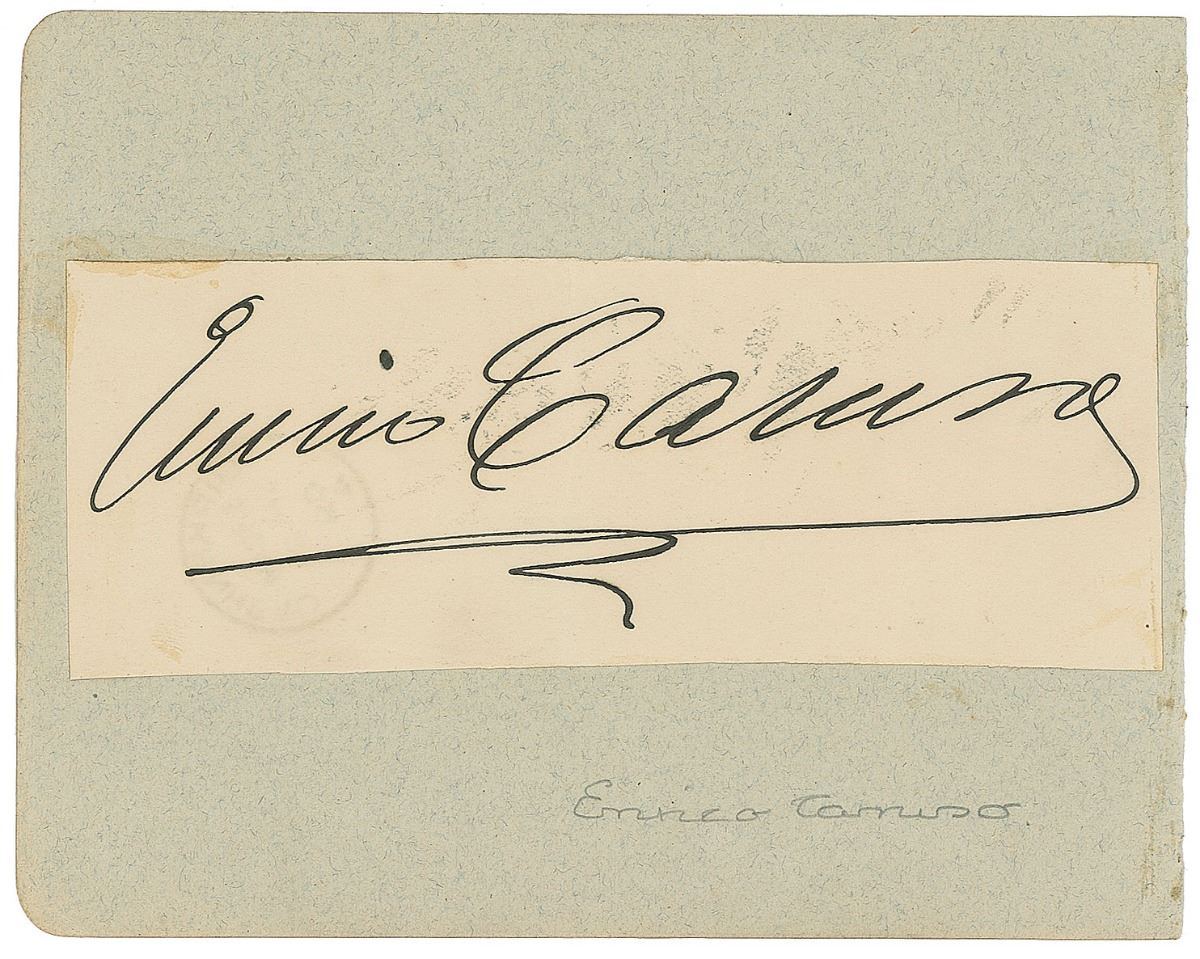 Enrico Caruso
Enrico Caruso.